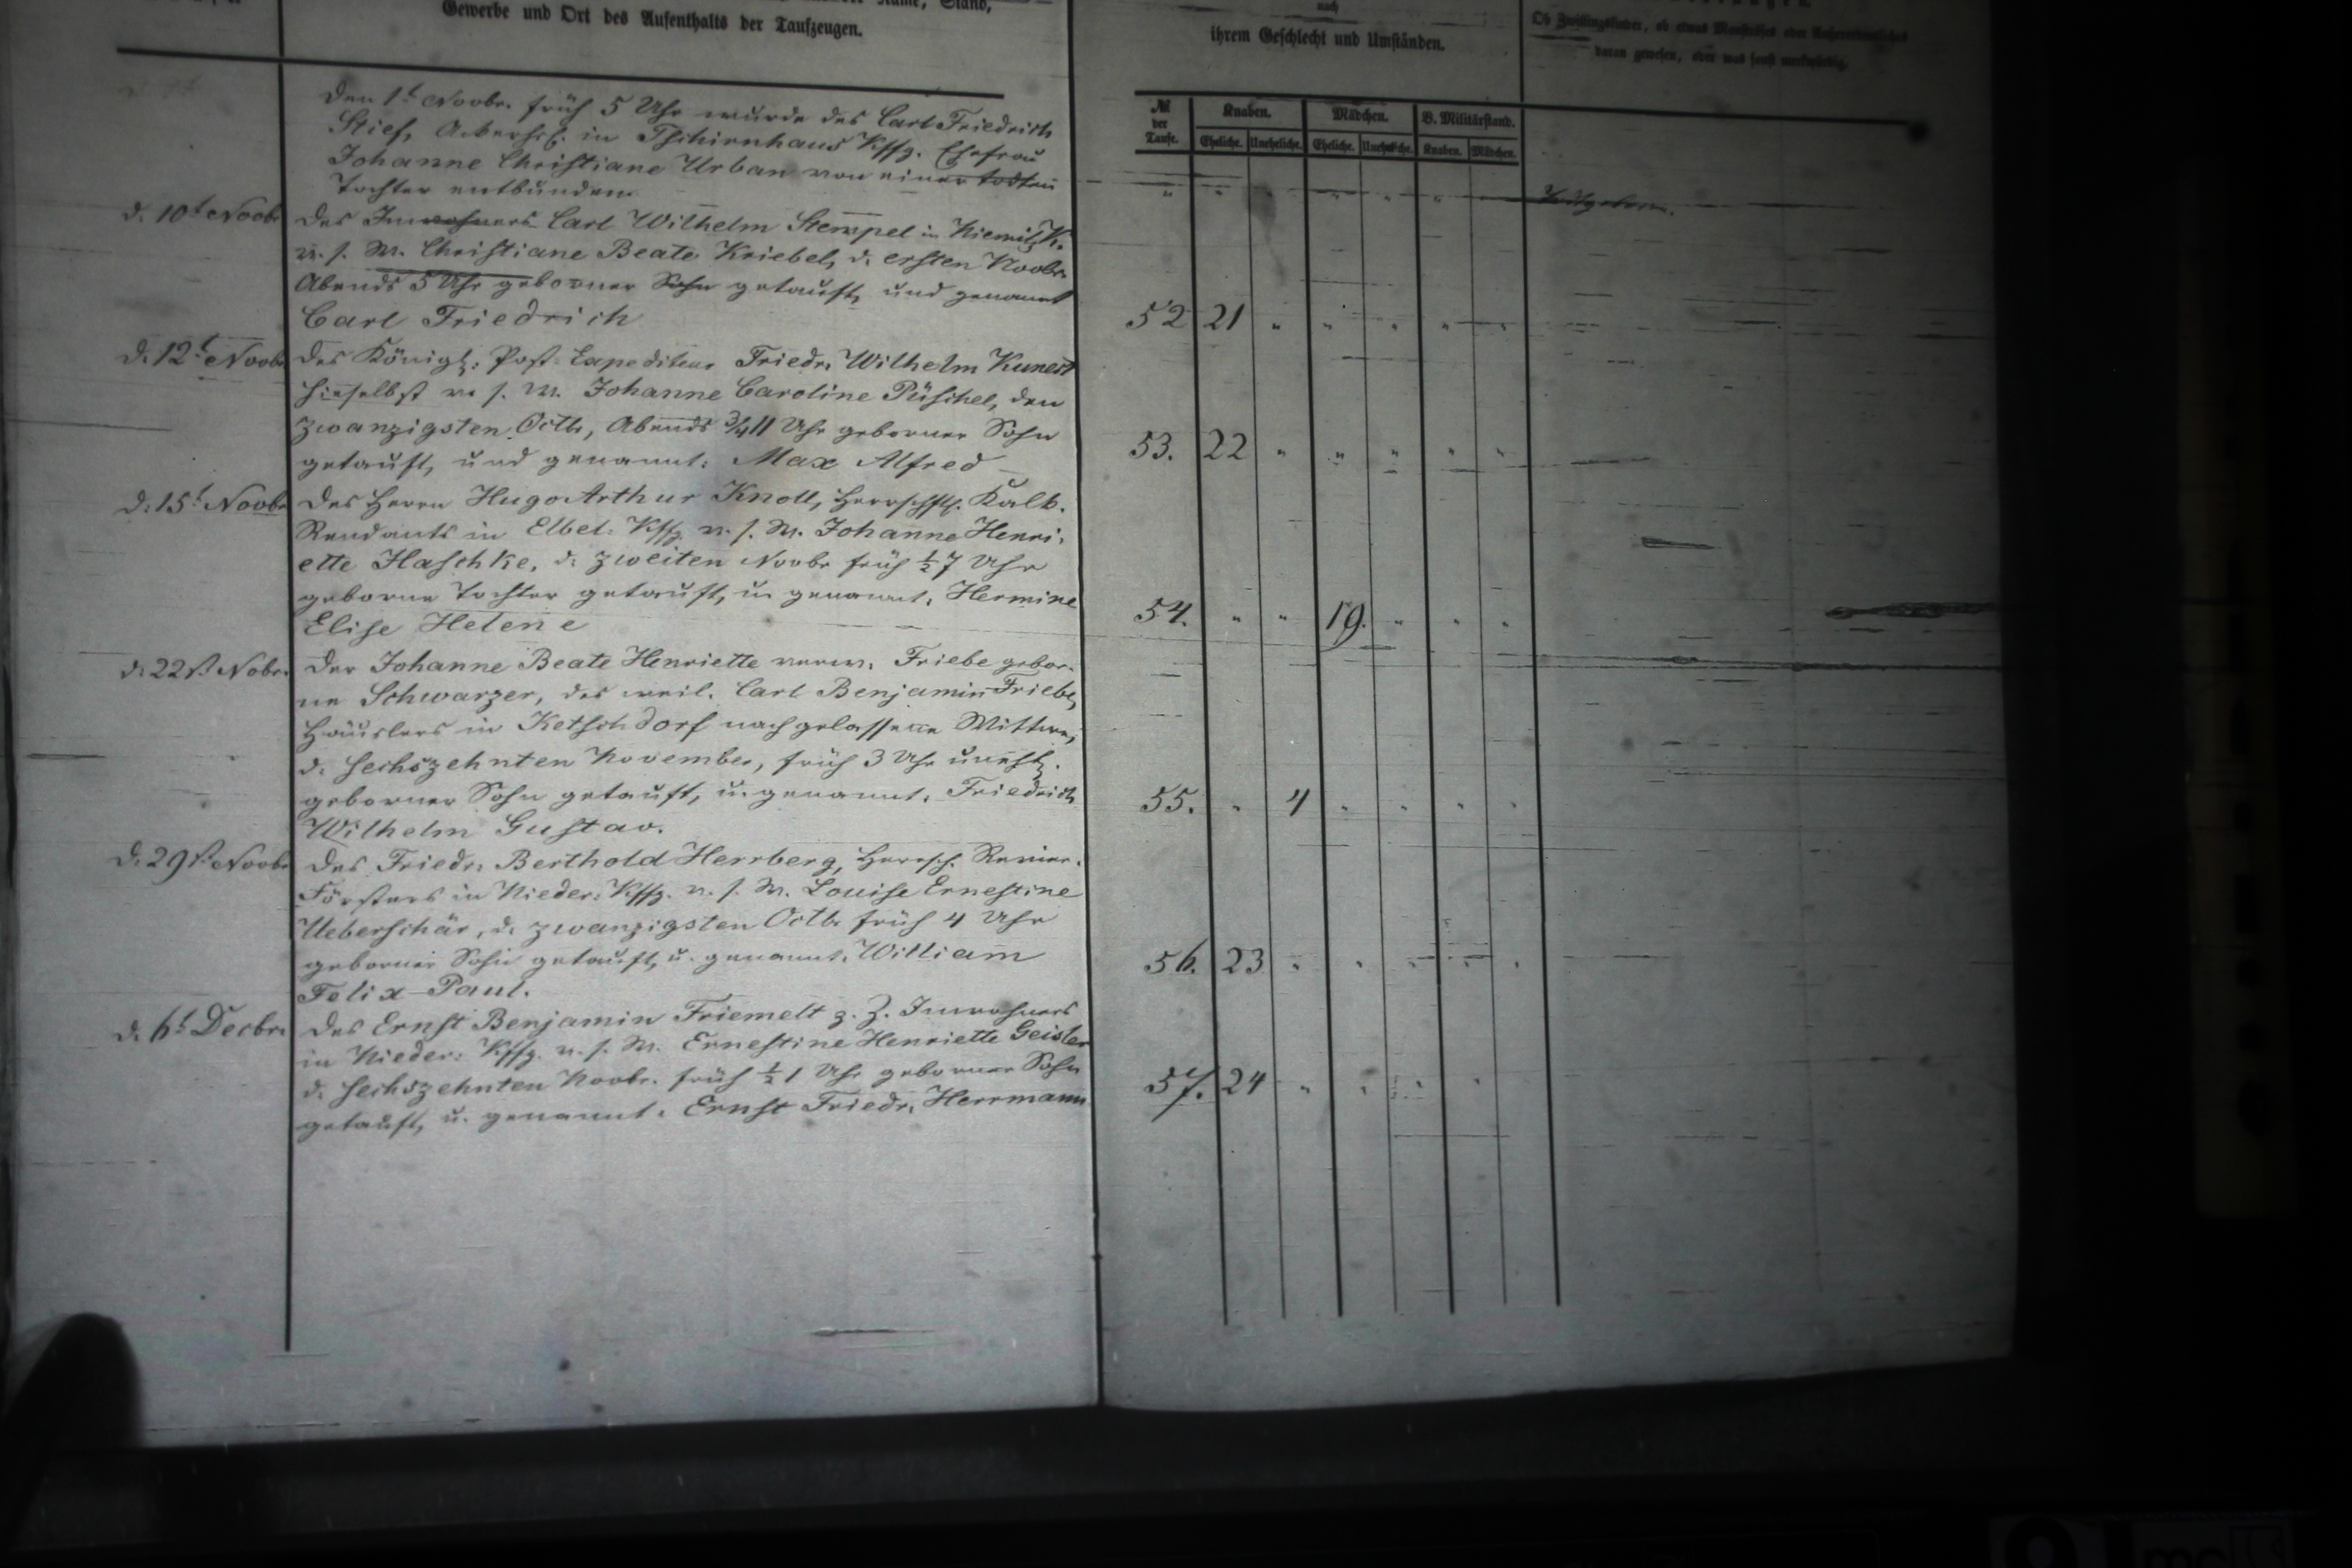 Gewerbe und Ort des Aufenthalts der Taufzeugen.
nach
ihrem Geschlecht und Umständen.
Ob Zwillingskinder, ob etwas oder
daran gewesen, oder was sonst merkwürdig.
№ der Taufe.
Knaben. Mädchen. V. Militärstand.
Eheliche. Uneheliche. Eheliche. Uneheliche. Knaben. Mädchen.
Den 1t Novbr. früh 5 Uhr wurde des Carl Friedrich
Stief, in Tschirnhaus Kffg. Ehefrau
Johanne Christiane Urban von einer todten
Tochter entbunden
" " " " "
d. 10t Novbr
Des Inwohners Carl Wilhelm Stempel in K.
v. s. W. Christiane Beate Kriebel, d. ersten Novbr.
Abends 5 Uhr geborner Sohn getauft, und genannt
Carl Friedrich
52 21 " " " " "
d. 12t Novbr
Des Königl. Post-Expediteur Friedr. Wilhelm Kunert
hieselbst v. s. W. Johanne Caroline Püschel, den
zwanzigsten Octb., Abends 3/4 11 Uhr geborner Sohn
getauft, und genannt: Max Alfred
53. 22 " " " " "
d. 15t Novbr
Des Herrn Hugo Arthur Knoll, Herrschftl. Kalk-
Rendants in Elbel-Kffg. v. s. W. Johanne Henri-
ette Haschke, d. zweiten Novbr früh ½7 Uhr
geborne Tochter getauft, u. genannt: Hermine
Elise Helene
54. " " 19. " " "
d. 22st Nobr.
Der Johanne Beate Henriette verw. Friebe gebor-
ne Schwarzer, des weil. Carl Benjamin Friebe,
Häuslers in Ketschdorf nachgelassene Wittwe,
d. sechszehnten November, früh 3 Uhr unehl.
geborner Sohn getauft, u. genannt: Friedrich
Wilhelm Gustav.
55. " 4 " " " "
d. 29st Novbr
Des Friedr. Berthold Herrberg, Herrsch. Revier-
Försters in Nieder-Kffg. v. s. W. Louise Ernestine
Ueberschär, d. zwanzigsten Octb. früh 4 Uhr
geborner Sohn getauft, u. genannt: William
Felix Paul.
56. 23 " " " " "
d. 6t Decbr.
Des Ernst Benjamin Friemelt z. Z. Inwohners
in Nieder-Kffg. v. s. W. Ernestine Henriette Geisler
d. sechszehnten Novbr. früh ½1 Uhr geborner Sohn
getauft, u. genannt: Ernst Friedr. Herrmann
57. 24 " " " "